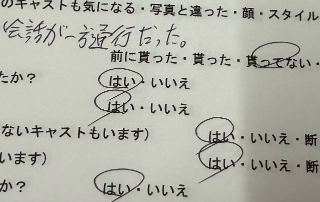 のキャストも気になる・写真と違った・顔・スタイル
会話が一方通行だった。
前に貰った・貰った・貰ってない・
たか？ はい・いいえ
はい・いいえ
ないキャストもいます） はい・いいえ・断
います） はい・いいえ・断
か？ はい・いいえ